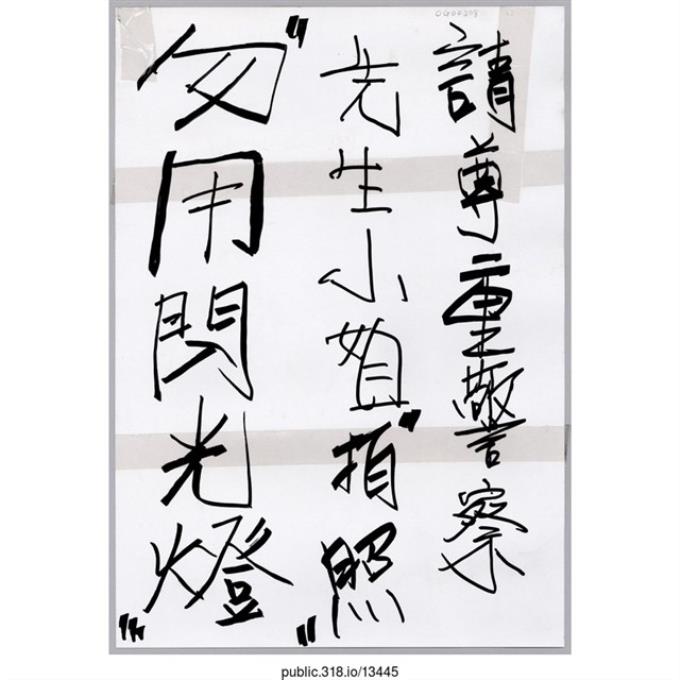 請尊重警察
先生小姐"拍照"
"勿用閃光燈"
public.318.io/13445